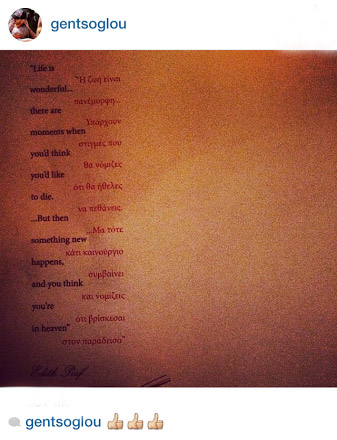 gentsoglou
"Life is
"Η ζωή είναι
wonderful...
πανέμορφη...
there are
Υπάρχουν
moments when
στιγμές που
you'd think
θα νόμιζες
you'd like
ότι θα ήθελες
to die.
να πεθάνεις.
...But then
...Μα τότε
something new
κάτι καινούργιο
happens,
συμβαίνει
and you think
και νομίζεις
you're
ότι βρίσκεσαι
in heaven"
στον παράδεισο"
Edith Piaf
gentsoglou